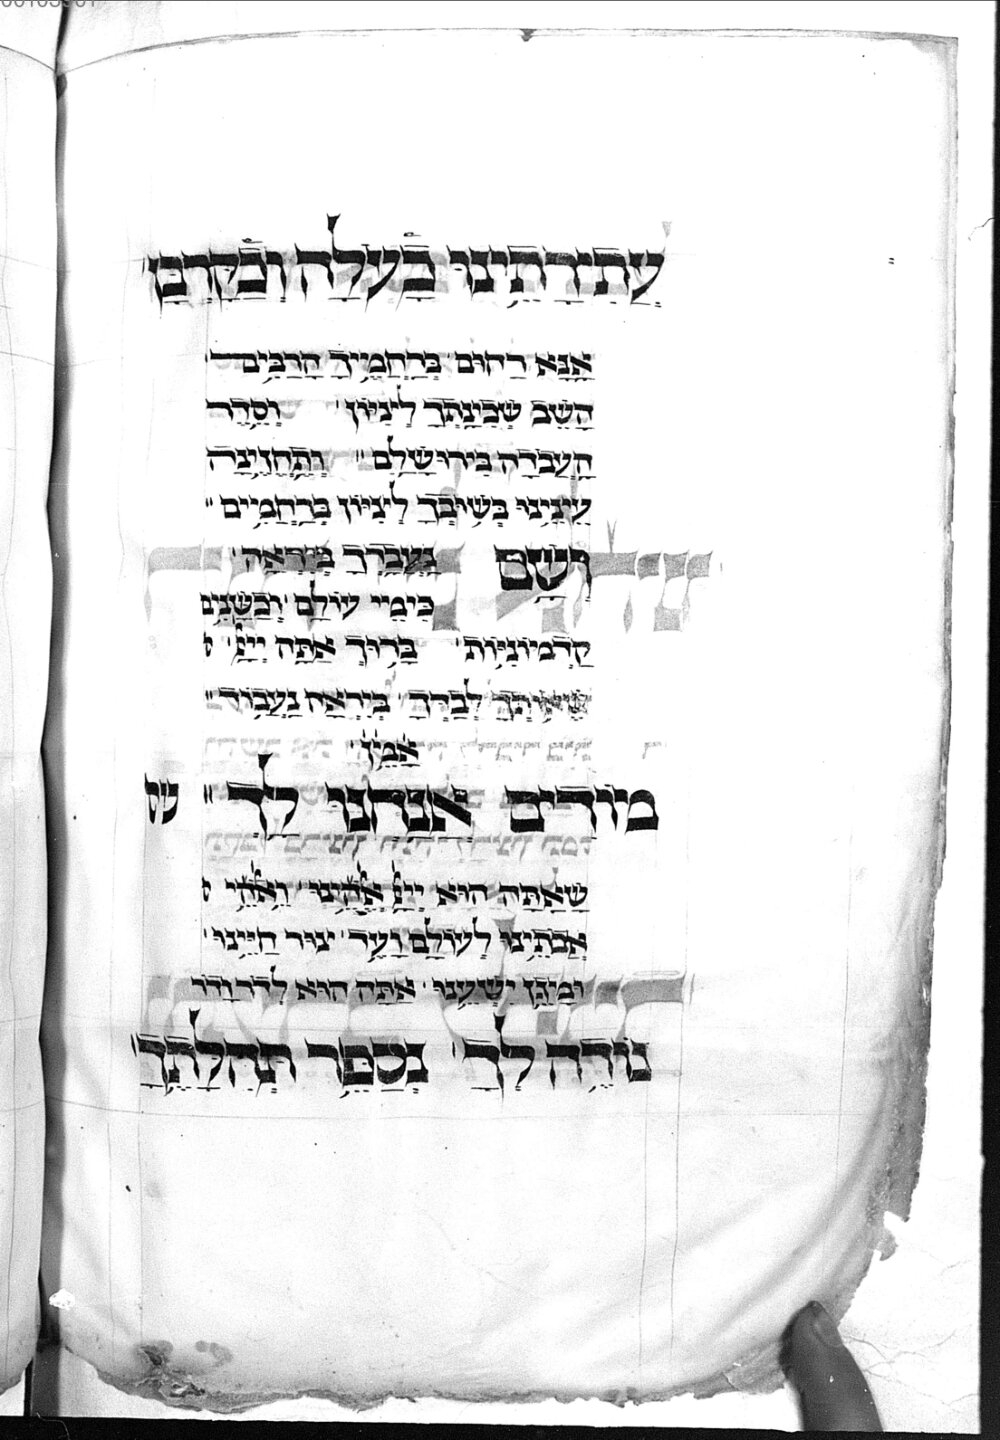 עֲתִירָתֵינוּ כְּעֹלָה וּכְקָרְבָּן
אָנָּא רַחוּם בְּרַחֲמֶיךָ הָרַבִּים
הָשֵׁב שְׁכִינָתְךָ לְצִיּוֹן וְסֵדֶר
הָעֲבוֹדָה לִירוּשָׁלַם וְתֶחֱזֶינָה
עֵינֵינוּ בְּשׁוּבְךָ לְצִיּוֹן בְּרַחֲמִים
וְשָׁם נַעֲבָדְךָ בְּיִרְאָה
כִּימֵי עוֹלָם וּכְשָׁנִים
קַדְמוֹנִיּוֹת בָּרוּךְ אַתָּה יְיָ
שֶׁאוֹתְךָ לְבַדְּךָ בְּיִרְאָה נַעֲבוֹד
אָמֵן
מוֹדִים אֲנַחְנוּ לָךְ
שָׁאַתָּה הוּא יְיָ אֱלֹהֵינוּ וֵאלֹהֵי
אֲבֹתֵינוּ לְעוֹלָם וָעֶד צוּר חַיֵּינוּ
וּמָגֵן יִשְׁעֵנוּ אַתָּה הוּא לְדֹר וָדֹר
נוֹדֶה לְךָ נְסַפֵּר תְּהִלָּתֶךָ